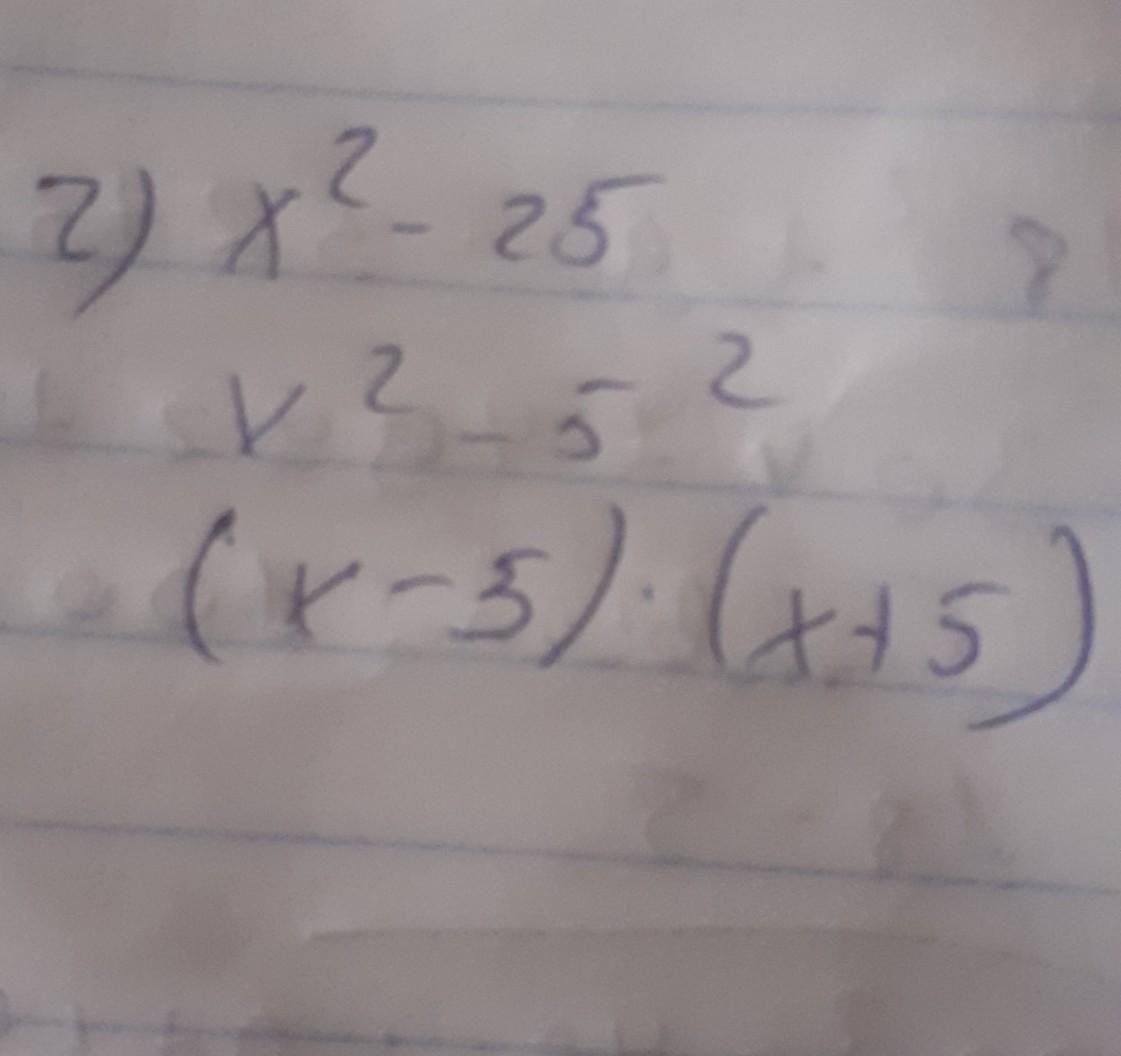 2) x² - 25
x² - 5²
(x - 5) · (x + 5)